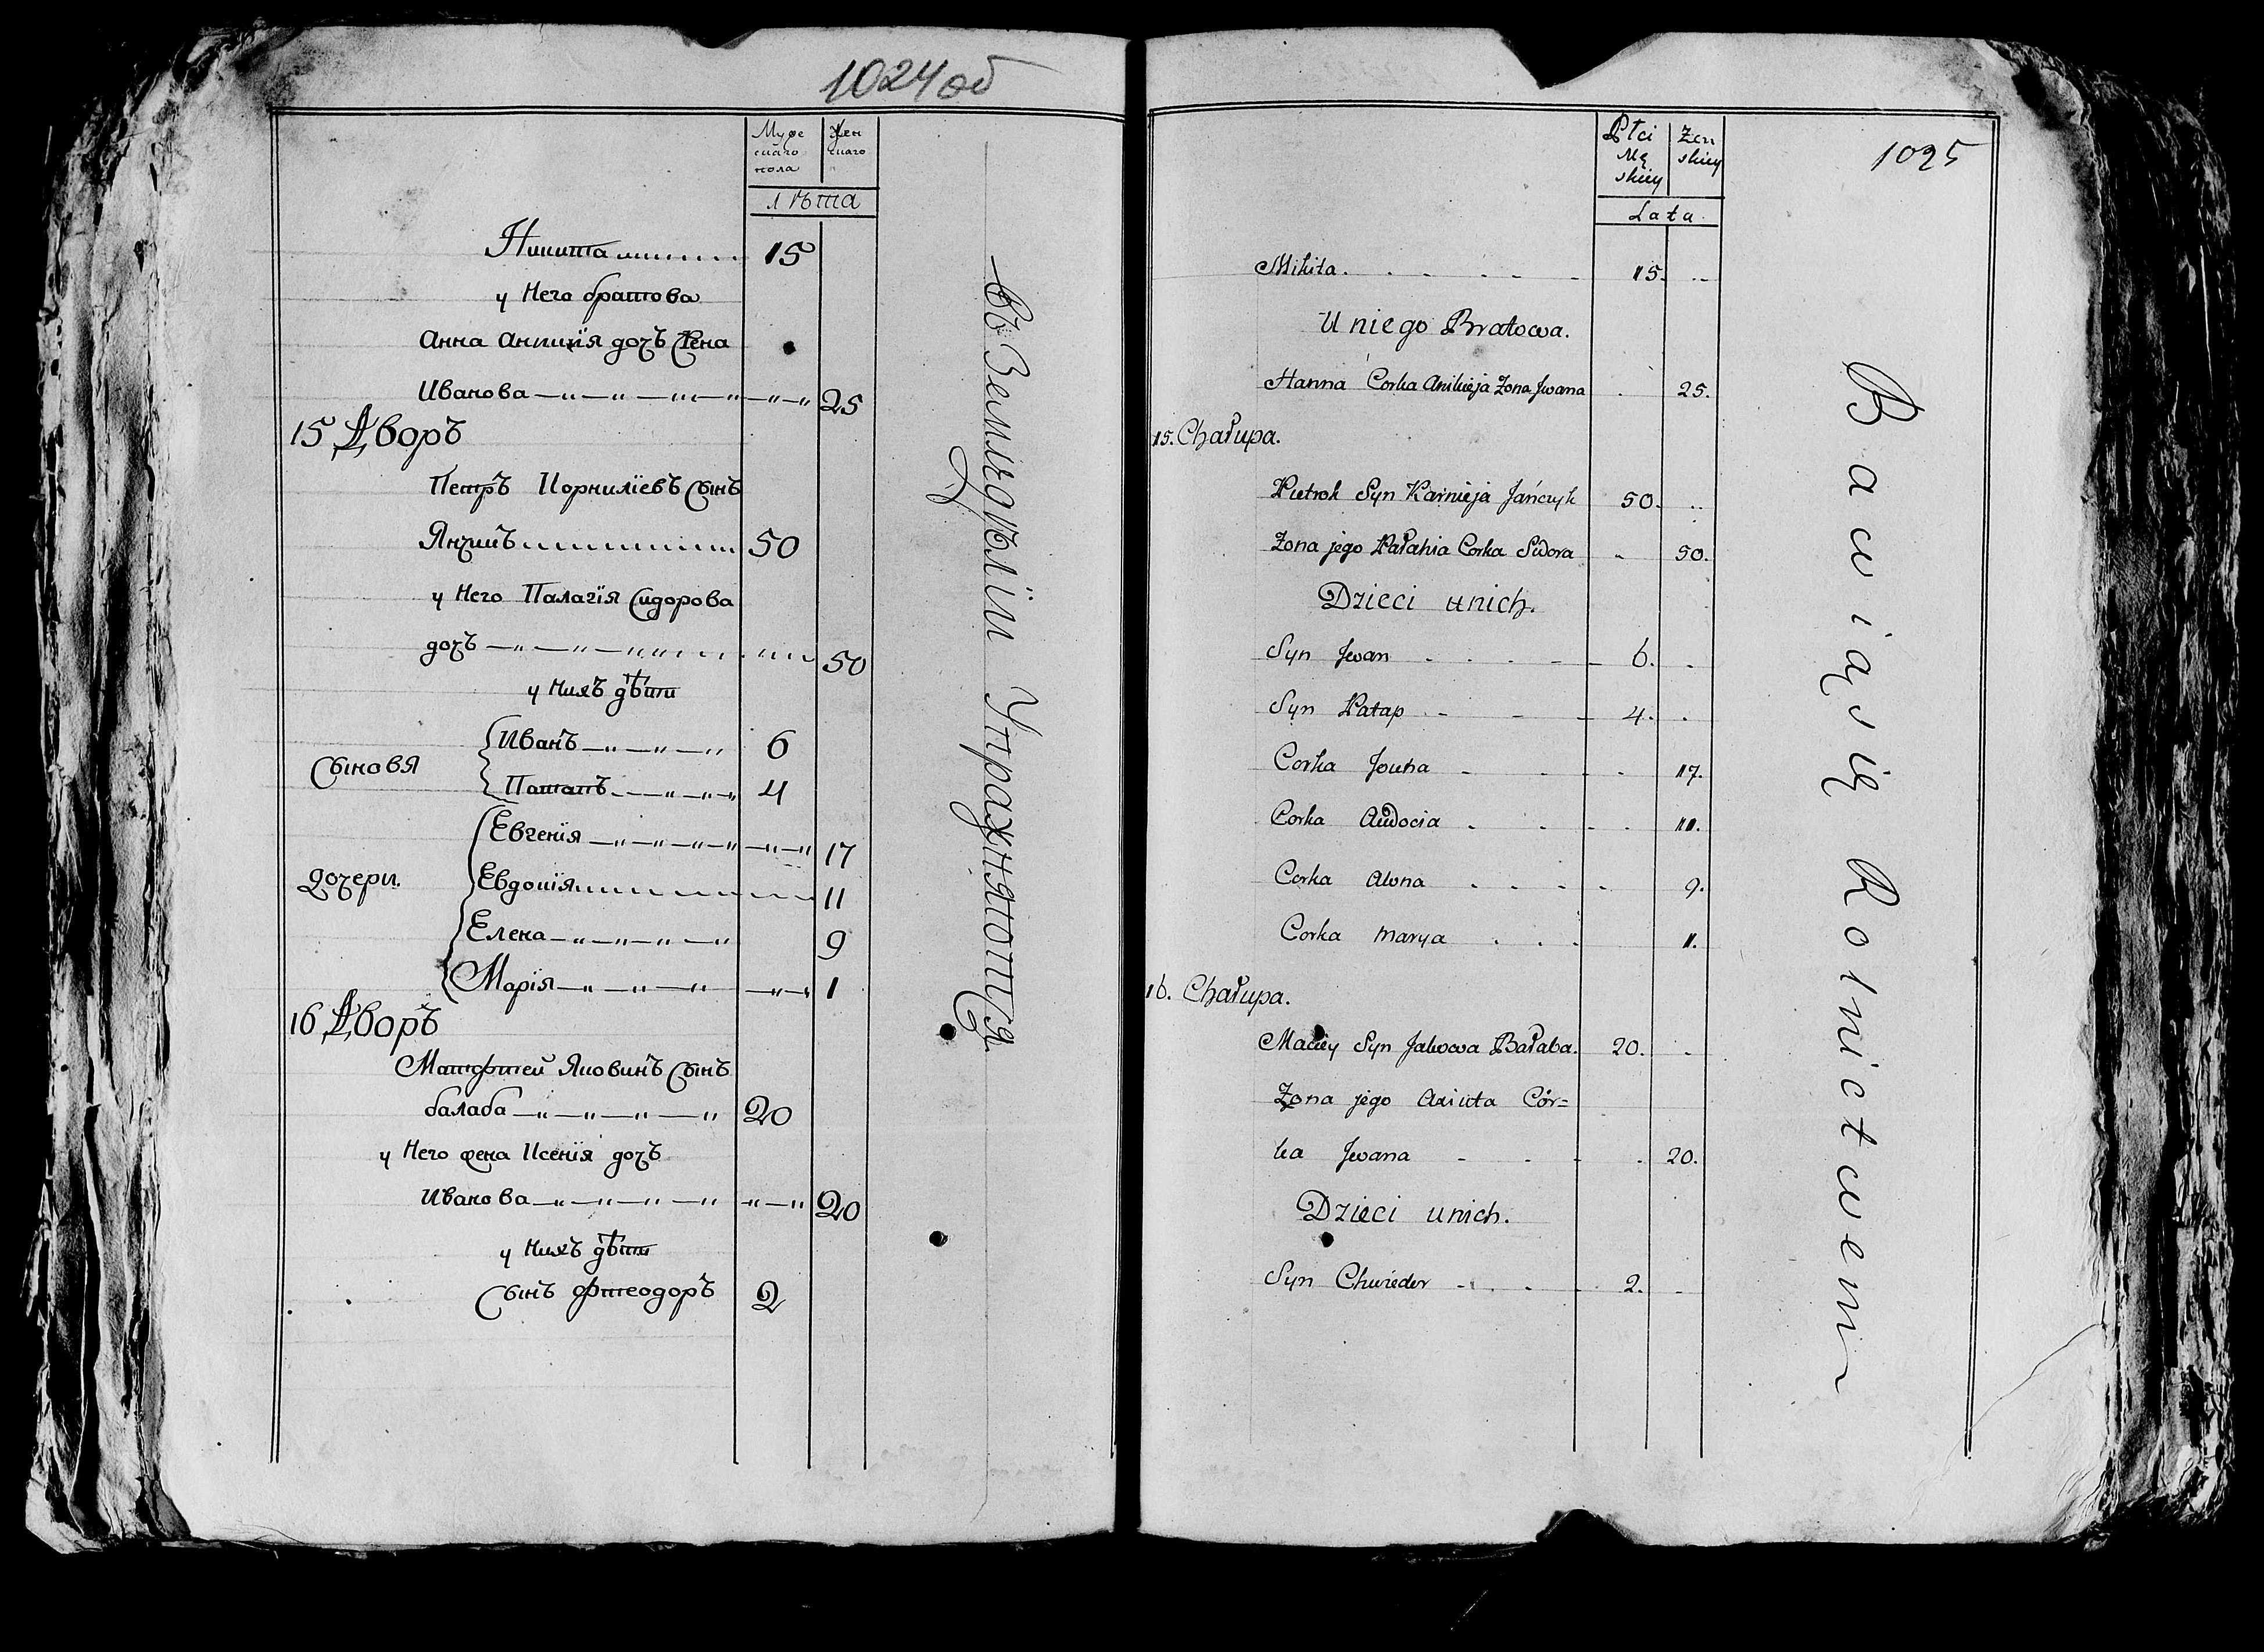 1024об
Муже
скаго
пола
Жен
скаго
лѣта
Никита 15
у Него братова
Анна Аникїя дочъ Жена
Иванова 25
15 Дворъ
Петръ Корнилїевъ Сынъ
Янчикъ 50
у Него Палагїя Сидорова
дочъ 50
у Нихъ дѣти
Сыновя
Иванъ 6
Потапъ 4
дочери
Евгенїя 17
Евдокїя 11
Елена 9
Марїя 1
16 Дворъ
Матфтей Яковинъ Сынъ
балаба 20
у Него жена Ксенїя дочъ
Иванова 20
у Нихъ дѣти
Сынъ Фтеодоръ 2
въ Земледѣлїи Упражняются
1025
Płci
Mę
skiey
Żen
skiey
Lata
Mikita 15.
U niego Bratowa.
Hanna Corka Anikieja Zona Jwana 25.
15. Chałupa.
Pietrok Syn Karnieja Jańczyk 50.
Zona jego Pałahia Corka Sidora 50.
Dzieci unich.
Syn Jwan 6.
Syn Patap 4.
Corka Jouha 17.
Corka Audocia 11.
Corka Alona 9.
Corka Marya 1.
16. Chałupa.
Maciey Syn Jakowa Bałaba. 20.
Zona jego Axiuta Cór=
ka Jwana 20.
Dzieci unich.
Syn Chwieder 2.
Bawiąsię Rolnictwem